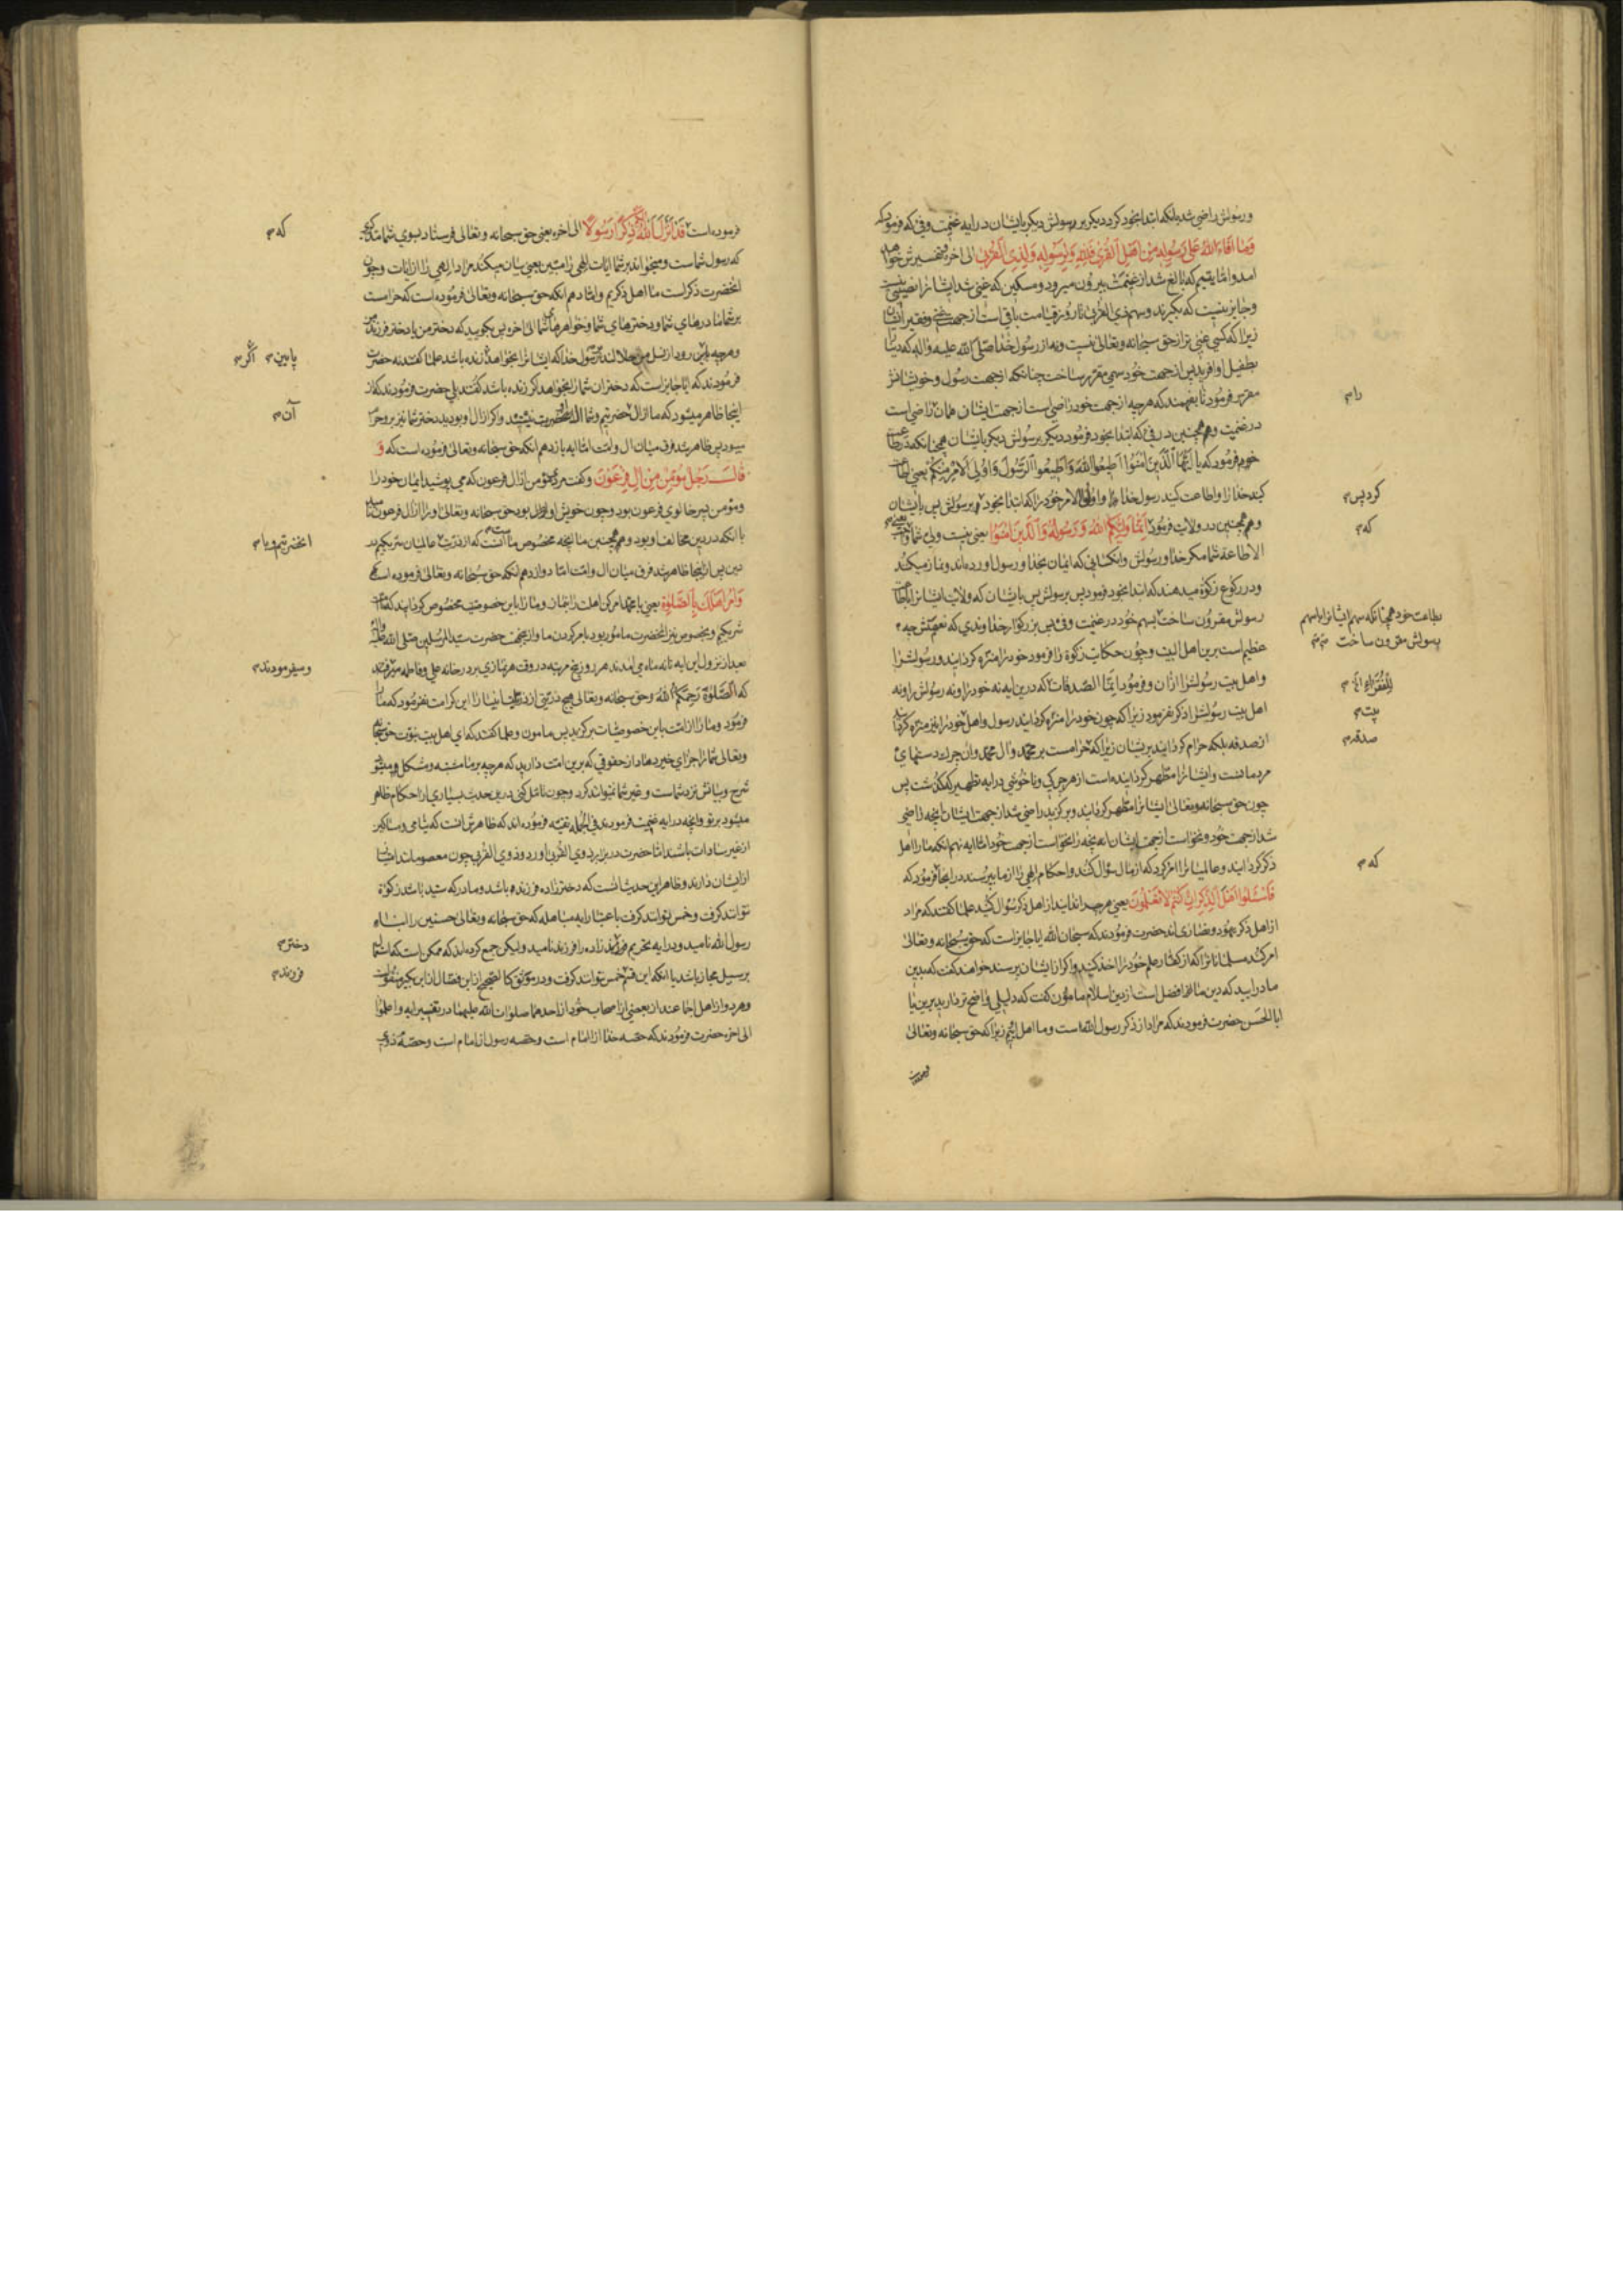 ورسولش راضی شد بلکه ابتدا بخود کرد دیگر بر رسولش دیگر بایشان در ایه غنیمت وفی که فرموده که
وما افاء الله علی رسوله من اهل القری فلله وللرسوله ولذی القربی الی اخره وتفسیرش خواهد
امد واما یتیم که بالغ شد از غنیمت بیرون میرود ومسکین که غنی شد ایشانرا نصیبی نیست
وجایز نیست که بگیرند وسهم ذی القربی تا روز قیامت باقی است از جهت غنی وفقیر ایشان
زیرا که کسی غنی تر از حق سبحانه وتعالی نیست ونه از رسول خدا صلی الله علیه واله که دنیا را
بطفیل او افرید پس از جهت خود سهمی مقرر ساخت چنانکه از جهت رسول وخویشانش
مقرر فرمود تا بفهمند که هرچه از جهت خود راضی است از جهت ایشان همان راضی است
در غنیمت وهمچنین در فی که ابتدا بخود فرمود دیگر برسولش دیگر بایشان همچنانکه در طاعت
خود فرمود که یا ایها الذین امنوا اطیعوا الله واطیعوا الرسول واولی الامر منکم یعنی اطاعت
کنید خدا را واطاعت کنید رسول خدا را واولی الامر خود را که ابتدا بخود برسولش پس بایشان
کرد پس
وهمچنین در ولایت فرمود انما ولیکم الله ورسوله والذین امنوا یعنی نیست ولی شما
که
الاطاعة شما مگر خدا ورسولش وانکسانی که ایمان بخدا ورسول اورده‌اند ونماز میکنند
ودر رکوع زکوة میدهند که ابتدا بخود فرمود پس برسولش پس بایشان که ولایت ایشانرا باطاعت
رسولش مقرون ساخت بسهم خود در غنیمت وفی پس بزرگوار خداوندی که نعمتش چه
بطاعت خود همچنانکه سهم ایشانرا با سهم
رسولش مقرون ساخت
عظیم است برین اهل البیت وچون حکایت زکوة را فرمود خود را منزه گردانید ورسولش را
واهل بیت رسولش را ازان وفرمود انما الصدقات که درین ایه نه خود را ونه رسولش را ونه
للفقراء
اهل بیت رسولش را ذکر نفرمود زیرا که چون خود را منزه گردانید رسول واهل خود را نیز منزه گردانید
بیت
از صدقه بلکه حرام گردانید بر یشان زیرا که حرامست بر محمد وال محمد وان چرک دستهای
صدقه
مردمانست وایشانرا مطهر گردانیده است از هر چرکی وناخوشی در ایه تطهیر که گذشت پس
چون حق سبحانه وتعالی ایشانرا مطهر گردانید وبرگزید راضی شد از جهت ایشان انچه راضی
شد از جهت خود ونخواست از جهت ایشان انچه را نخواست از جهت خود اما ایه نهم انکه ما را اهل
ذکر گردانید وعالمیانرا امر کرد که از ما سؤال کنند واحکام الهی را از ما بپرسند در انجا فرمود که
که
فاسئلوا اهل الذکر ان کنتم لا تعلمون یعنی هرچه را ندانید از اهل ذکر سؤال کنید علما گفتند که مراد
از اهل ذکر یهود ونصاری اند حضرت فرمودند که سبحان الله ایا جایز است که حق سبحانه وتعالی
امر کند مسلمانانرا که از کفار علم خود را اخذ کنید واگر از ایشان پرسند خواهند گفت که بدین
ما در ایید که دین ما افضل است از دین اسلام مامون گفت که دلیلی واضح‌تر دارید برین یا
ابا الحسن حضرت فرمودند که مراد از ذکر رسول الله است وما اهل اوییم زیرا که حق سبحانه وتعالی
فرموده است
فرموده است قد انزل الله الیکم ذکرا رسولا الی اخره یعنی حق سبحانه وتعالی فرستاد بسوی شما
که
که رسول شماست ومیخواند بر شما ایات الهی را مبین یعنی بیان میکند مراد الهی را از ایات وچون
انحضرت ذکر است ما اهل ذکریم واما دهم انکه حق سبحانه وتعالی فرموده است که حرامست
بر شما مادرهای شما ودخترهای شما وخواهرهای شما الی اخره پس بگویید که دختر من یا دختر فرزند من
وهرچه پایین رود از نسل من حلالند رسول خدا که ایشانرا بخواهد زنده باشد علما گفتند نه حضرت
پایین اگر
فرمودند که ایا جایز است که دختران شما را بخواهد اگر زنده باشد گفتند بلی حضرت فرمودند که از
اینجا ظاهر میشود که ما از ال حضرتیم وشما ال انحضرت نیستید واگر از ال او بودید دختر شما نیز بر وحرام
آن
میبود پس ظاهر شد فرق میان ال وامت اما ایه یازدهم انکه حق سبحانه وتعالی فرموده است که و
قال رجل مؤمن من ال فرعون وگفت مرد مؤمن از ال فرعون که می پوشید ایمان خود را
ومؤمن پسر خالوی فرعون بود وچون خویش او بود حق سبحانه وتعالی او را از ال فرعون شمرد
با انکه در دین مخالف او بود وهمچنین ما انچه مخصوص ما است انست که از ذریت عالمیان شریکیم در
انحضرتیم وبا
دین پس از اینجا ظاهر شد فرق میان ال وامت اما دوازدهم انکه حق سبحانه وتعالی فرموده است
وامر اهلک بالصلوة یعنی یا محمد امر کن اهلت را بنماز وما را باین خصوصیت مخصوص گردانید که با امت
شریکیم وبخصوص نیز انحضرت مامور بود بامر کردن ما واز اینجهت حضرت سید المرسلین صلی الله علیه واله
بعد از نزول این ایه تا نه ماه می امدند هر روز پنج مرتبه در وقت هر نمازی بر در خانه علی وفاطمه
ومیفرمودند
که الصلوة رحمکم الله وحق سبحانه وتعالی هیچ ذریتی از ذریات انبیا را این کرامت نفرمود که ما را
فرمود وما را از امت باین خصوصیات برگزید پس مامون وعلما گفتند که ای اهل بیت نبوت حق سبحانه
وتعالی شما را جزای خیر دهاد از حقوقی که برین امت دارید که هرچه بر ما مشتبه ومشکل میشود
شرح وبیانش نزد شماست وغیر شما نتواند کرد وچون تامل کنی درین حدیث بسیاری از احکام ظاهر
میشود بر تو وانچه در ایه غنیمت فرمودند فی الجمله تقیه فرموده‌اند که ظاهرش انست که یتامی ومساکین
از غیر سادات باشند اما حضرت در برابر ذوی القربی اورد وذوی القربی چون معصومند
از ایشان دارند وظاهر این حدیث انست که دختر زاده فرزنده باشد ومادر که سید باشد زکوة
نتواند گرفت وخمس تواند گرفت باعتبار ایه مباهله که حق سبحانه وتعالی حسنین را ابناء
رسول الله نامید ودر ایه تحریم فرزند زاده را فرزند نامید ولیکن جمع کرده‌اند که ممکن است که
دختر
بر سبیل مجاز باشد با انکه ابن قسم خمس تواند گرفت ودر موثق کالصحیح از ابن فضال از ابن بکیر منقولست
فرزند
وهر دو از اهل اجماعند از بعضی از اصحاب خود از احدهما صلوات الله علیهما در تفسیر ایه واعلموا
الی اخره حضرت فرمودند که حصه خدا از امام است وحصه رسول از امام است وحصهٔ ذوی